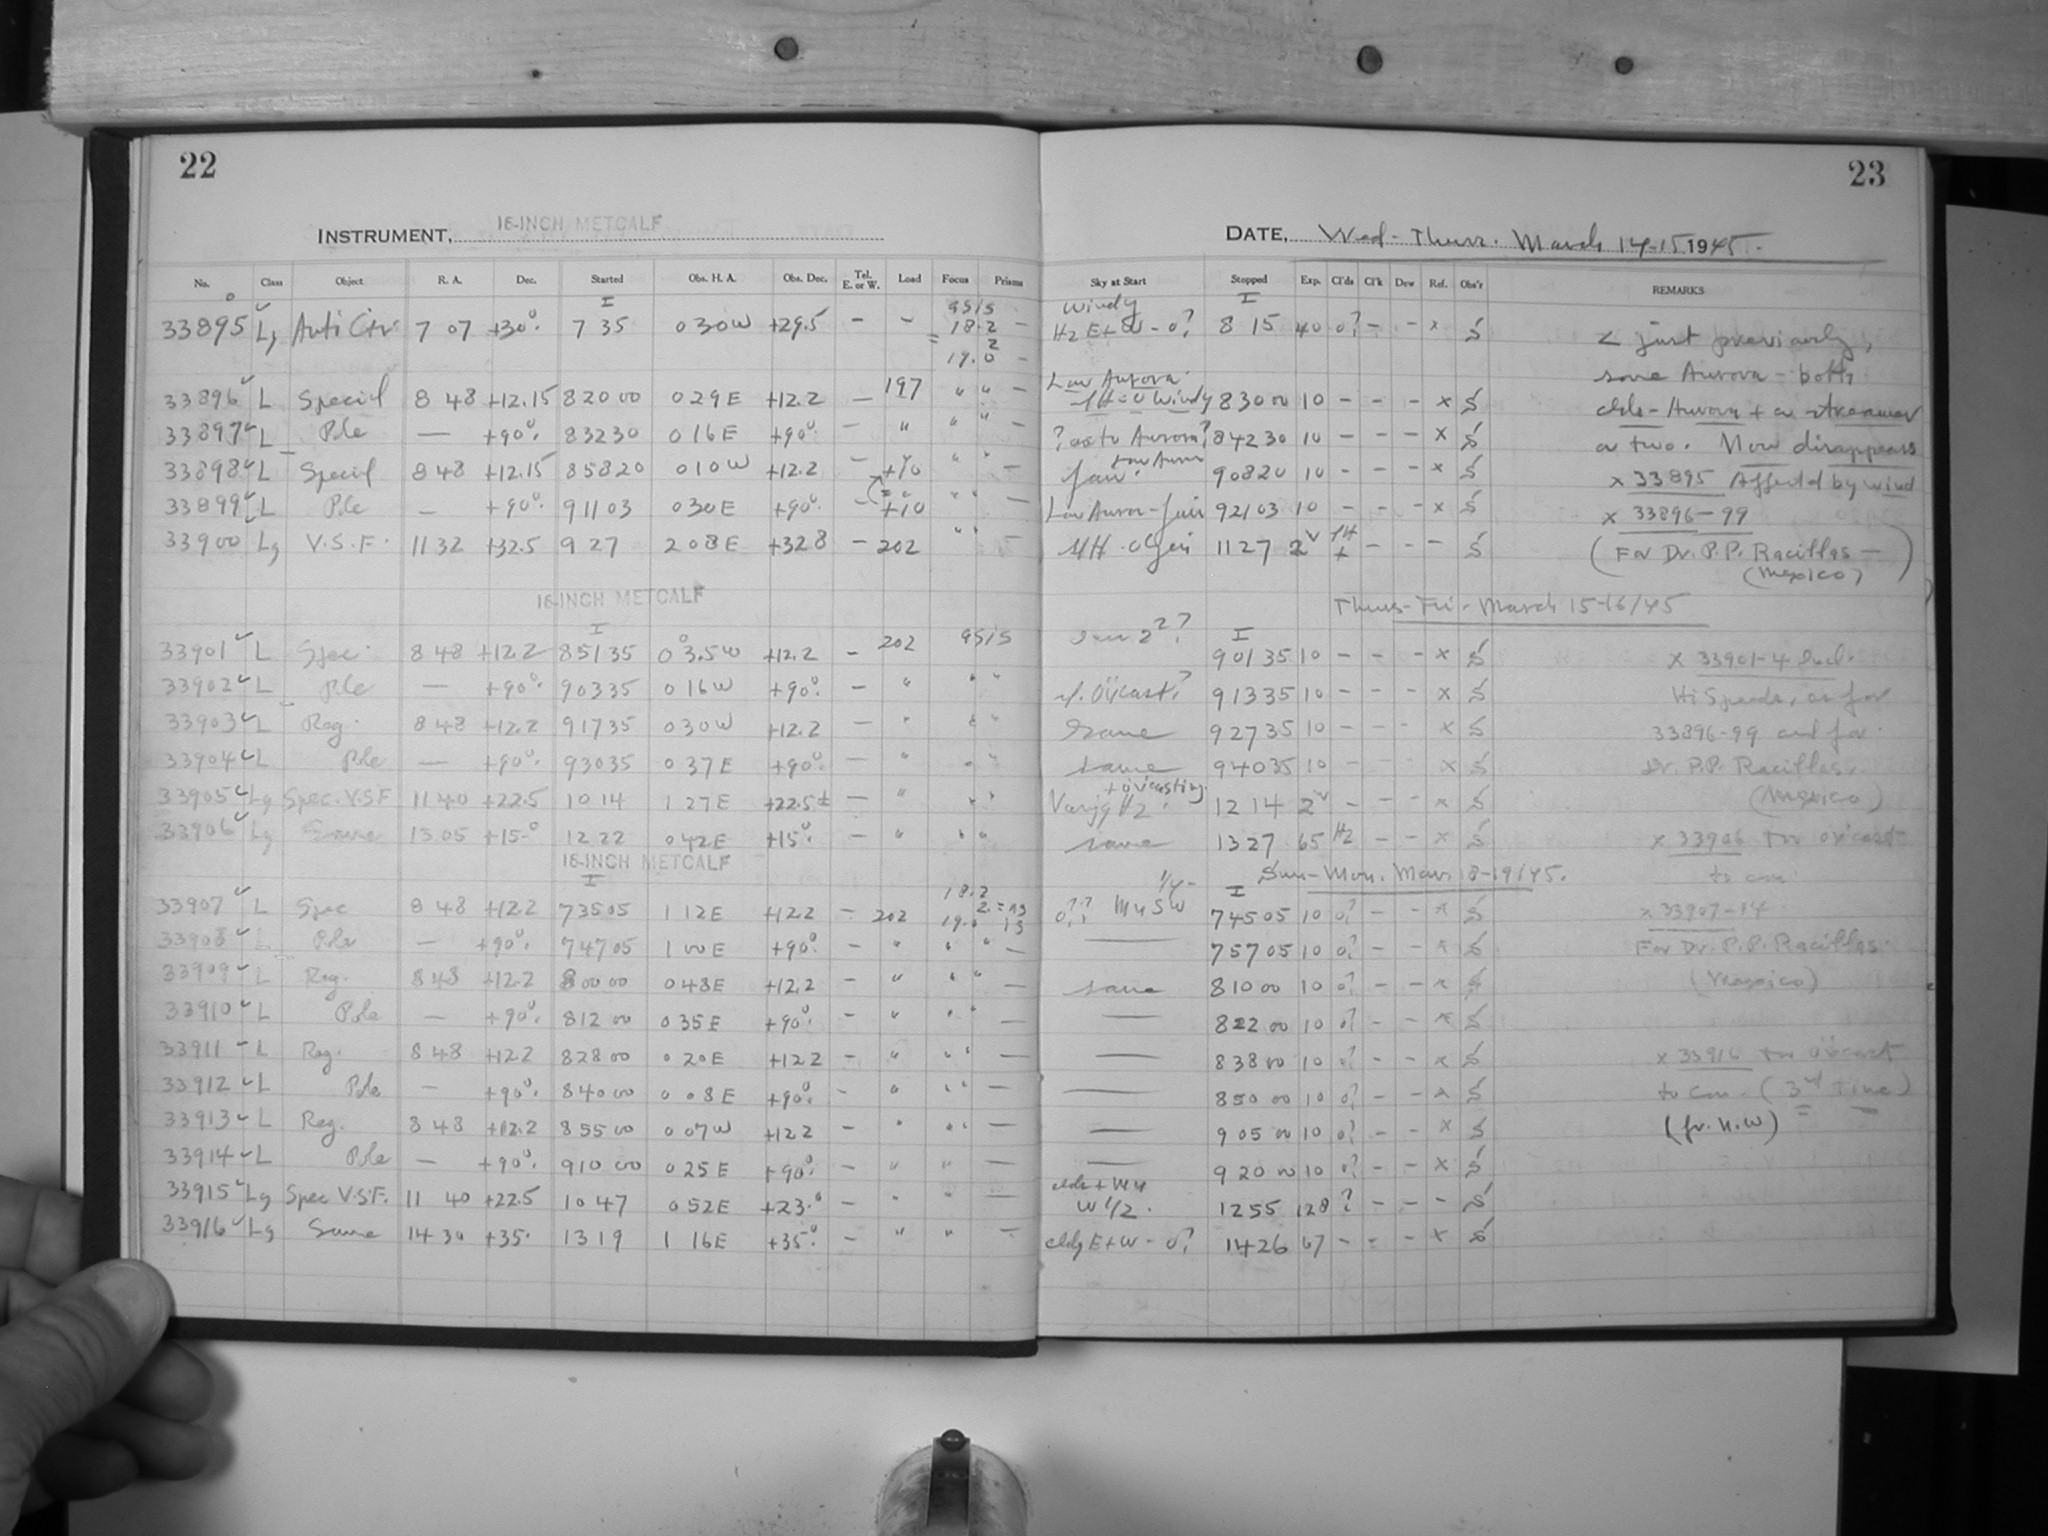 22
16-INCH METCALF
INSTRUMENT,
No. Class Object R. A. Dec. Started Obs. H. A. Obs. Dec. Tel. E. or W. Load Focus Prisms
33895 Lg Anti Ctr 7 07 +30° 7 35 0 30 W +29.5 - - 9515 18.2 -
19.0 -
33896 L Special 8 48 +12.15 8 20 00 0 29 E +12.2 — 197 " " -
33897 L Pole — +90° 8 32 30 0 16 E +90° - " " " -
33898 L Special 8 48 +12.15 8 58 20 0 10 W +12.2 - +10 " " -
33899 L Pole — +90° 9 11 03 0 30 E +90° - +10 " " -
33900 Lg V.S.F. 11 32 +32.5 9 27 2 08 E +32.8 - 202 " " -
16-INCH METCALF
33901 L Spec. 8 48 +12.2 8 51 35 0 3.5 W +12.2 - 202 9515
33902 L Pole — +90° 9 03 35 0 16 W +90° - " " "
33903 L Reg. 8 48 +12.2 9 17 35 0 30 W +12.2 - " " "
33904 L Pole — +90° 9 30 35 0 37 E +90° - " " "
33905 Lg Spec. V.S.F 11 40 +22.5 10 14 1 27 E +22.5± - " " "
33906 Lg Same 13.05 +15° 12 22 0 42 E +15° - " " "
16-INCH METCALF
33907 L Spec 8 48 +12.2 7 35 05 1 12 E +12.2 - 202 18.2 19.0
33908 L Pole — +90° 7 47 05 1 00 E +90° - " " " -
33909 L Reg. 8 48 +12.2 8 00 00 0 48 E +12.2 - " " " -
33910 L Pole — +90° 8 12 00 0 35 E +90° - " " " -
33911 L Reg. 8 48 +12.2 8 28 00 0 20 E +12.2 - " " " -
33912 L Pole — +90° 8 40 00 0 08 E +90° - " " " -
33913 L Reg. 8 48 +12.2 8 55 00 0 07 W +12.2 - " " " -
33914 L Pole — +90° 9 10 00 0 25 E +90° - " " -
33915 Lg Spec V.S.F. 11 40 +22.5 10 47 0 52 E +23° - " " -
33916 Lg Same 14 30 +35° 13 19 1 16 E +35° - " " -
23
DATE, Wed - Thurs. March 14-15 1945.
Sky at Start Stopped Exp. Cl'ds Cl'k Dew Ref. Obs'r REMARKS
Windy
H2 E+W - 0? 8 15 40 0? - - x S
< just previously,
some Aurora - both
Low Aurora
Windy 8 30 00 10 - - - x S
clds - Aurora + a streamer
? as to Aurora? 8 42 30 10 - - - x S
or two. Now disappears
fair. Low Auror 9 08 20 10 - - - x S
x 33895 Affected by wind
Low Auror - fair 9 21 03 10 - - - x S
x 33896-99
11 27 2 - - - S
(For Dr. P.P. Racillas —
(Mexico)
Thurs-Fri. March 15-16/45
9 01 35 10 - - - x S
x 33901-4 Incl.
ov'cast? 9 13 35 10 - - - x S
Hi Speeds, as for
Same 9 27 35 10 - - - x S
33896-99 and for
same 9 40 35 10 - - - x S
Dr. P.P. Racillas.
+ ov'casting
H2. 12 14 2 - - - x S
(Mexico)
same 13 27 65 H2 - - x S
x 33906 Too ov'cast
to con.
Sun-Mon. Mar. 18-19/45.
7 45 05 10 0? - - x S
x 33907-14
—— 7 57 05 10 0? - - x S
For Dr. P.P. Racillas.
same 8 10 00 10 0? - - x S
(Mexico)
—— 8 22 00 10 0? - - x S
—— 8 38 00 10 0? - - x S
x 33916 Too ov'cast
—— 8 50 00 10 0? - - x S
to con. (3rd Time)
—— 9 05 00 10 0? - - x S
(fr. N.W)
—— 9 20 00 10 0? - - x S
W 1/2. 12 55 128 ? - - - S
cldy E+W - 0? 14 26 67 - - - x S